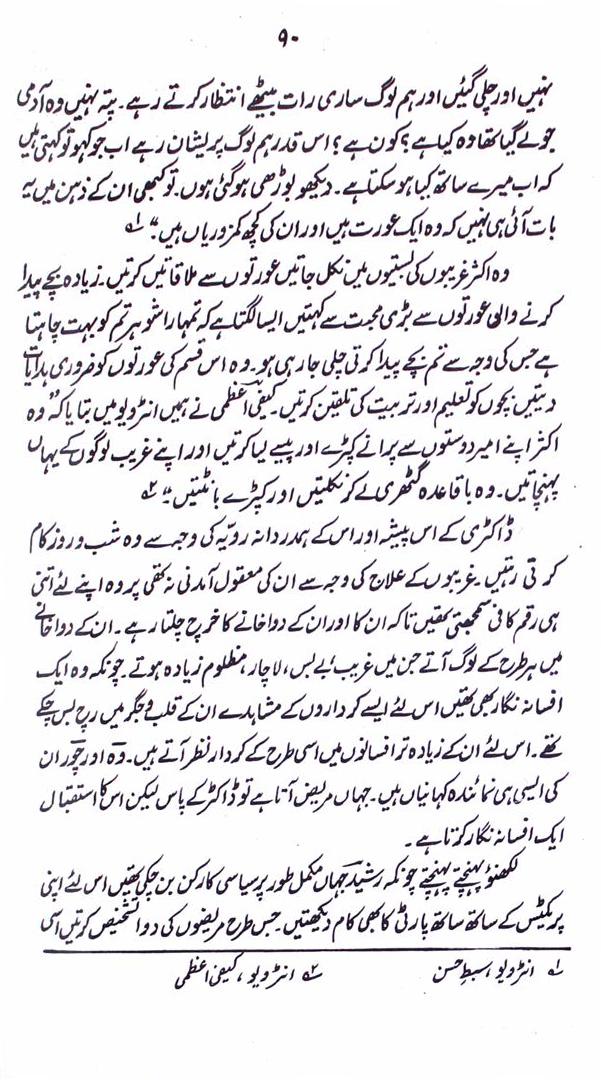 ۹۰
نہیں اور چلی گئیں اور ہم لوگ ساری رات بیٹھے انتظار کرتے رہے۔ پتہ نہیں وہ آدمی
جو لے گیا تھا وہ کیا ہے؟ کون ہے؟ اس قدر ہم لوگ پریشان رہے اب جو کہو تو کہتی ہیں
کہ اب میرے ساتھ کیا ہو سکتا ہے۔ دیکھو بوڑھی ہو گئی ہوں۔ تو کبھی ان کے ذہن میں یہ
بات آئی ہی نہیں کہ وہ ایک عورت ہیں اور ان کی کچھ کمزوریاں ہیں۔" ۱؎
وہ اکثر غریبوں کی بستیوں میں نکل جاتیں عورتوں سے ملاقاتیں کرتیں۔ زیادہ بچے پیدا
کرنے والی عورتوں سے بڑی محبت سے کہتیں ایسا لگتا ہے کہ تمہارا شوہر تم کو بہت چاہتا
ہے جس کی وجہ سے تم بچے پیدا کرتی چلی جا رہی ہو۔ وہ اس قسم کی عورتوں کو ضروری ہدایات
دیتیں بچوں کو تعلیم اور تربیت کی تلقین کرتیں۔ کیفی اعظمی نے ہمیں انٹرویو میں بتایا کہ "وہ
اکثر اپنے امیر دوستوں سے پرانے کپڑے اور پیسے لیا کرتیں اور اپنے غریب لوگوں کے یہاں
پہنچاتیں۔ وہ باقاعدہ گٹھری لے کر نکلتیں اور کپڑے بانٹتیں۔" ۲؎
ڈاکٹری کے اس پیشہ اور اس کے ہمدردانہ رویّہ کی وجہ سے وہ شب و روز کام
کرتی رہتیں۔ غریبوں کے علاج کی وجہ سے ان کی معقول آمدنی نہ تھی پر وہ اپنے لئے اتنی
ہی رقم کافی سمجھتی تھیں تاکہ ان کا اور ان کے دواخانے کا خرچ چلتا رہے۔ ان کے دواخانے
میں ہر طرح کے لوگ آتے جن میں غریب، بے بس، لاچار، مظلوم زیادہ ہوتے۔ چونکہ وہ ایک
افسانہ نگار بھی تھیں اس لئے ایسے کرداروں کے مشاہدے ان کے قلب و جگر میں رچ بس چکے
تھے۔ اس لئے ان کے زیادہ تر افسانوں میں اسی طرح کے کردار نظر آتے ہیں۔ وہ اور چور ان
کی ایسی ہی نمائندہ کہانیاں ہیں۔ جہاں مریض آتا ہے تو ڈاکٹر کے پاس لیکن اس کا استقبال
ایک افسانہ نگار کرتا ہے۔
لکھنؤ پہنچتے پہنچتے چونکہ رشید جہاں مکمل طور پر سیاسی کارکن بن چکی تھیں اس لئے اپنی
پریکٹس کے ساتھ ساتھ پارٹی کا بھی کام دیکھتیں۔ جس طرح مریضوں کی دوا تشخیص کرتیں اسی
۱؎ انٹرویو، سبط حسن ۲؎ انٹرویو، کیفی اعظمی